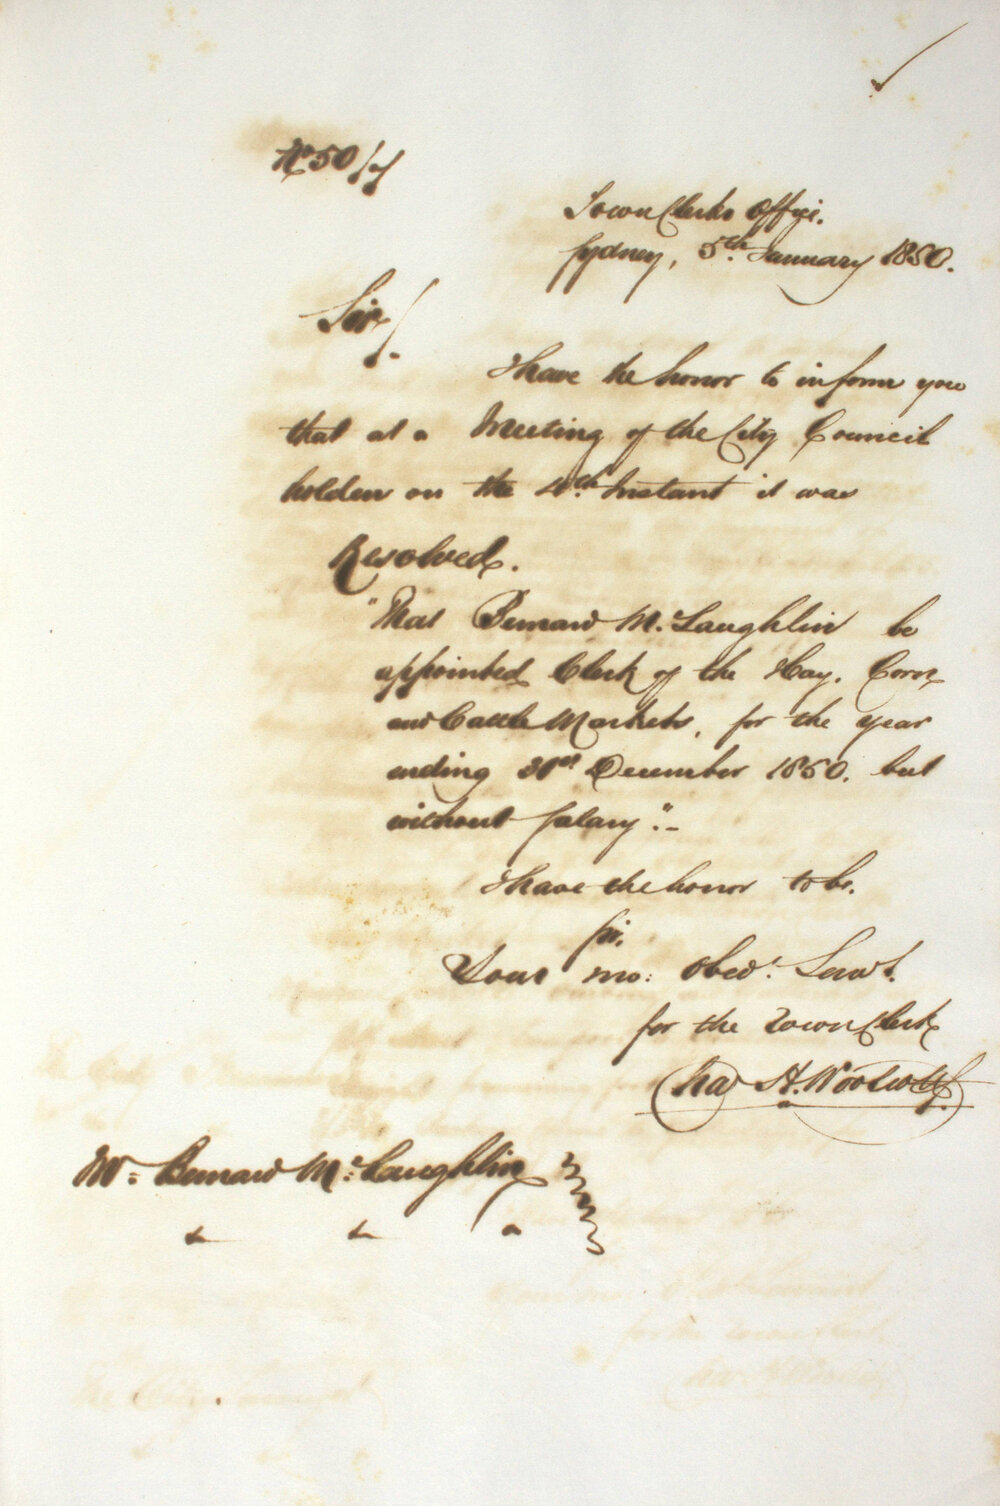 No 50/7
Town Clerks Office.
Sydney, 5th January 1850.
Sir/.
I have the honor to inform you
that at a Meeting of the City Council
holden on the 4th Instant it was
Resolved.
"That Bernard McLaughlin be
appointed Clerk of the Hay, Corn
and Cattle Markets, for the year
ending 31st December 1850. but
without Salary".-
I have the honor to be.
Sir.
Your mo: Obedt. Servt.
for the Town Clerk
Chas H. Woolcott.
Mr. Bernard McLaughlin